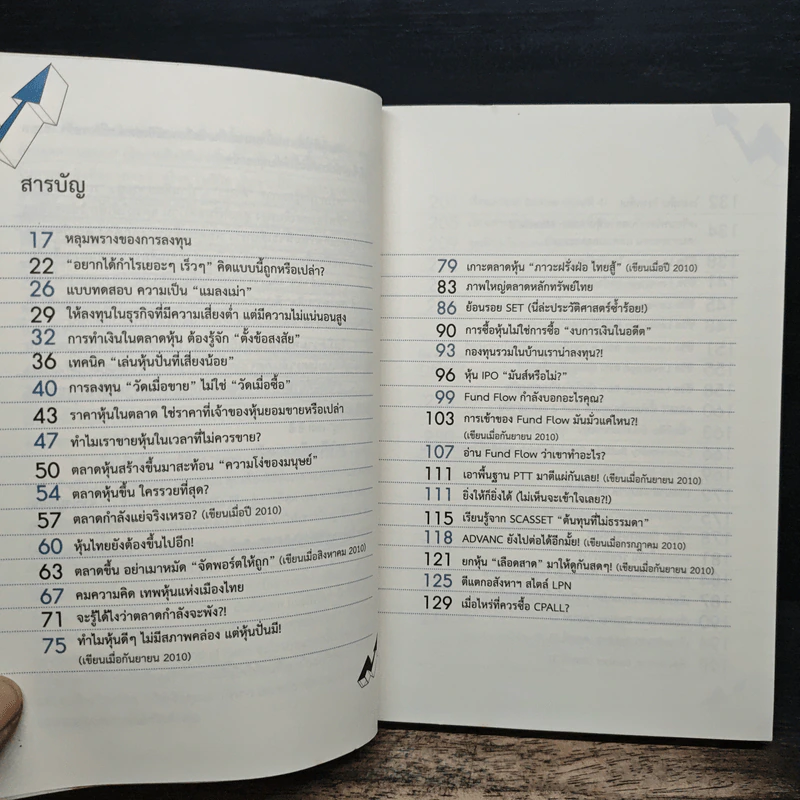 สารบัญ
17 หลุมพรางของการลงทุน
22 "อยากได้กำไรเยอะๆ เร็วๆ" คิดแบบนี้ถูกหรือเปล่า?
26 แบบทดสอบ ความเป็น "แมลงเม่า"
29 ให้ลงทุนในธุรกิจที่มีความเสี่ยงต่ำ แต่มีความไม่แน่นอนสูง
32 การทำเงินในตลาดหุ้น ต้องรู้จัก "ตั้งข้อสงสัย"
36 เทคนิค "เล่นหุ้นปั่นที่เสี่ยงน้อย"
40 การลงทุน "วัดเมื่อขาย" ไม่ใช่ "วัดเมื่อซื้อ"
43 ราคาหุ้นในตลาด ใช่ราคาที่เจ้าของหุ้นยอมขายหรือเปล่า
47 ทำไมเราขายหุ้นในเวลาที่ไม่ควรขาย?
50 ตลาดหุ้นสร้างขึ้นมาสะท้อน "ความโง่ของมนุษย์"
54 ตลาดหุ้นขึ้น ใครรวยที่สุด?
57 ตลาดกำลังแย่จริงเหรอ? (เขียนเมื่อปี 2010)
60 หุ้นไทยยังต้องขึ้นไปอีก!
63 ตลาดขึ้น อย่าเมาหมัด "จัดพอร์ตให้ถูก" (เขียนเมื่อสิงหาคม 2010)
67 คมความคิด เทพหุ้นแห่งเมืองไทย
71 จะรู้ได้ไงว่าตลาดกำลังจะพัง?!
75 ทำไมหุ้นดีๆ ไม่มีสภาพคล่อง แต่หุ้นปั่นมี!
(เขียนเมื่อกันยายน 2010)
79 เกาะตลาดหุ้น "ภาวะฝรั่งฝ่อ ไทยสู้" (เขียนเมื่อปี 2010)
83 ภาพใหญ่ตลาดหลักทรัพย์ไทย
86 ย้อนรอย SET (นี่ล่ะประวัติศาสตร์ซ้ำร้อย!)
90 การซื้อหุ้นไม่ใช่การซื้อ "งบการเงินในอดีต"
93 กองทุนรวมในบ้านเราน่าลงทุน?!
96 หุ้น IPO "มันส์หรือไม่?"
99 Fund Flow กำลังบอกอะไรคุณ?
103 การเข้าของ Fund Flow มันมั่วแค่ไหน?!
(เขียนเมื่อกันยายน 2010)
107 อ่าน Fund Flow ว่าเขาทำอะไร?
111 เอาพื้นฐาน PTT มาตีแผ่กันเลย! (เขียนเมื่อกันยายน 2010)
111 ยิ่งให้ก็ยิ่งได้ (ไม่เห็นจะเข้าใจเลย?!)
115 เรียนรู้จาก SCASSET "ต้นทุนที่ไม่ธรรมดา"
118 ADVANC ยังไปต่อได้อีกมั้ย! (เขียนเมื่อกรกฎาคม 2010)
121 ยกหุ้น "เลือดสาด" มาให้ดูกันสดๆ! (เขียนเมื่อกันยายน 2010)
125 ตีแตกอสังหาฯ สไตล์ LPN
129 เมื่อไหร่ที่ควรซื้อ CPALL?